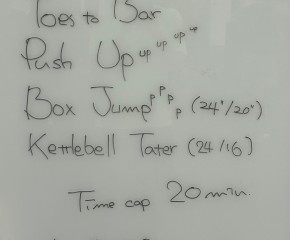 Toes to Bar
Push Up up up up up
Box Jump p p p p (24"/20")
Kettlebell Tater (24/16)
Time cap 20min.